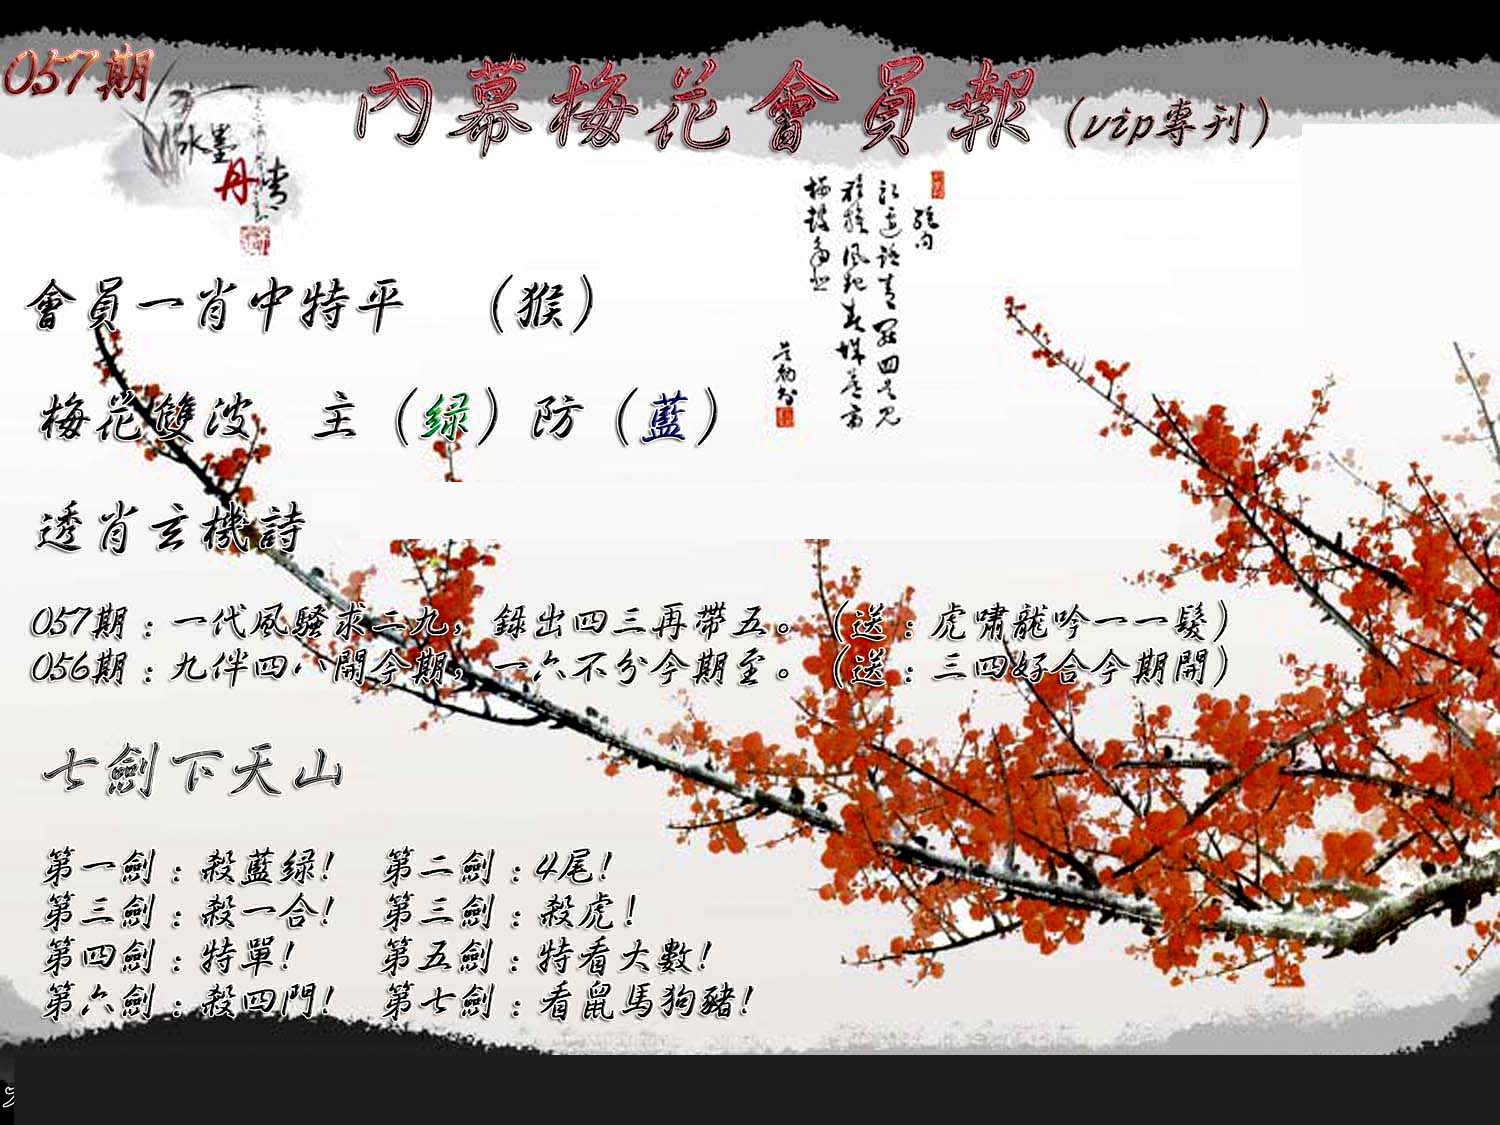 057期
內幕梅花會員報（vip專刊）
水墨
丹青
會員一肖中特平 （猴）
梅花雙波 主（绿）防（藍）
透肖玄機詩
057期：一代風騷求二九，錄出四三再帶五。（送：虎嘯龍吟一一髮）
056期：九伴四八開今期，一六不分今期至。（送：三四好合今期開）
七劍下天山
第一劍：殺藍绿！ 第二劍：4尾！
第三劍：殺一合！ 第三劍：殺虎！
第四劍：特單！ 第五劍：特看大數！
第六劍：殺四門！ 第七劍：看鼠馬狗豬！